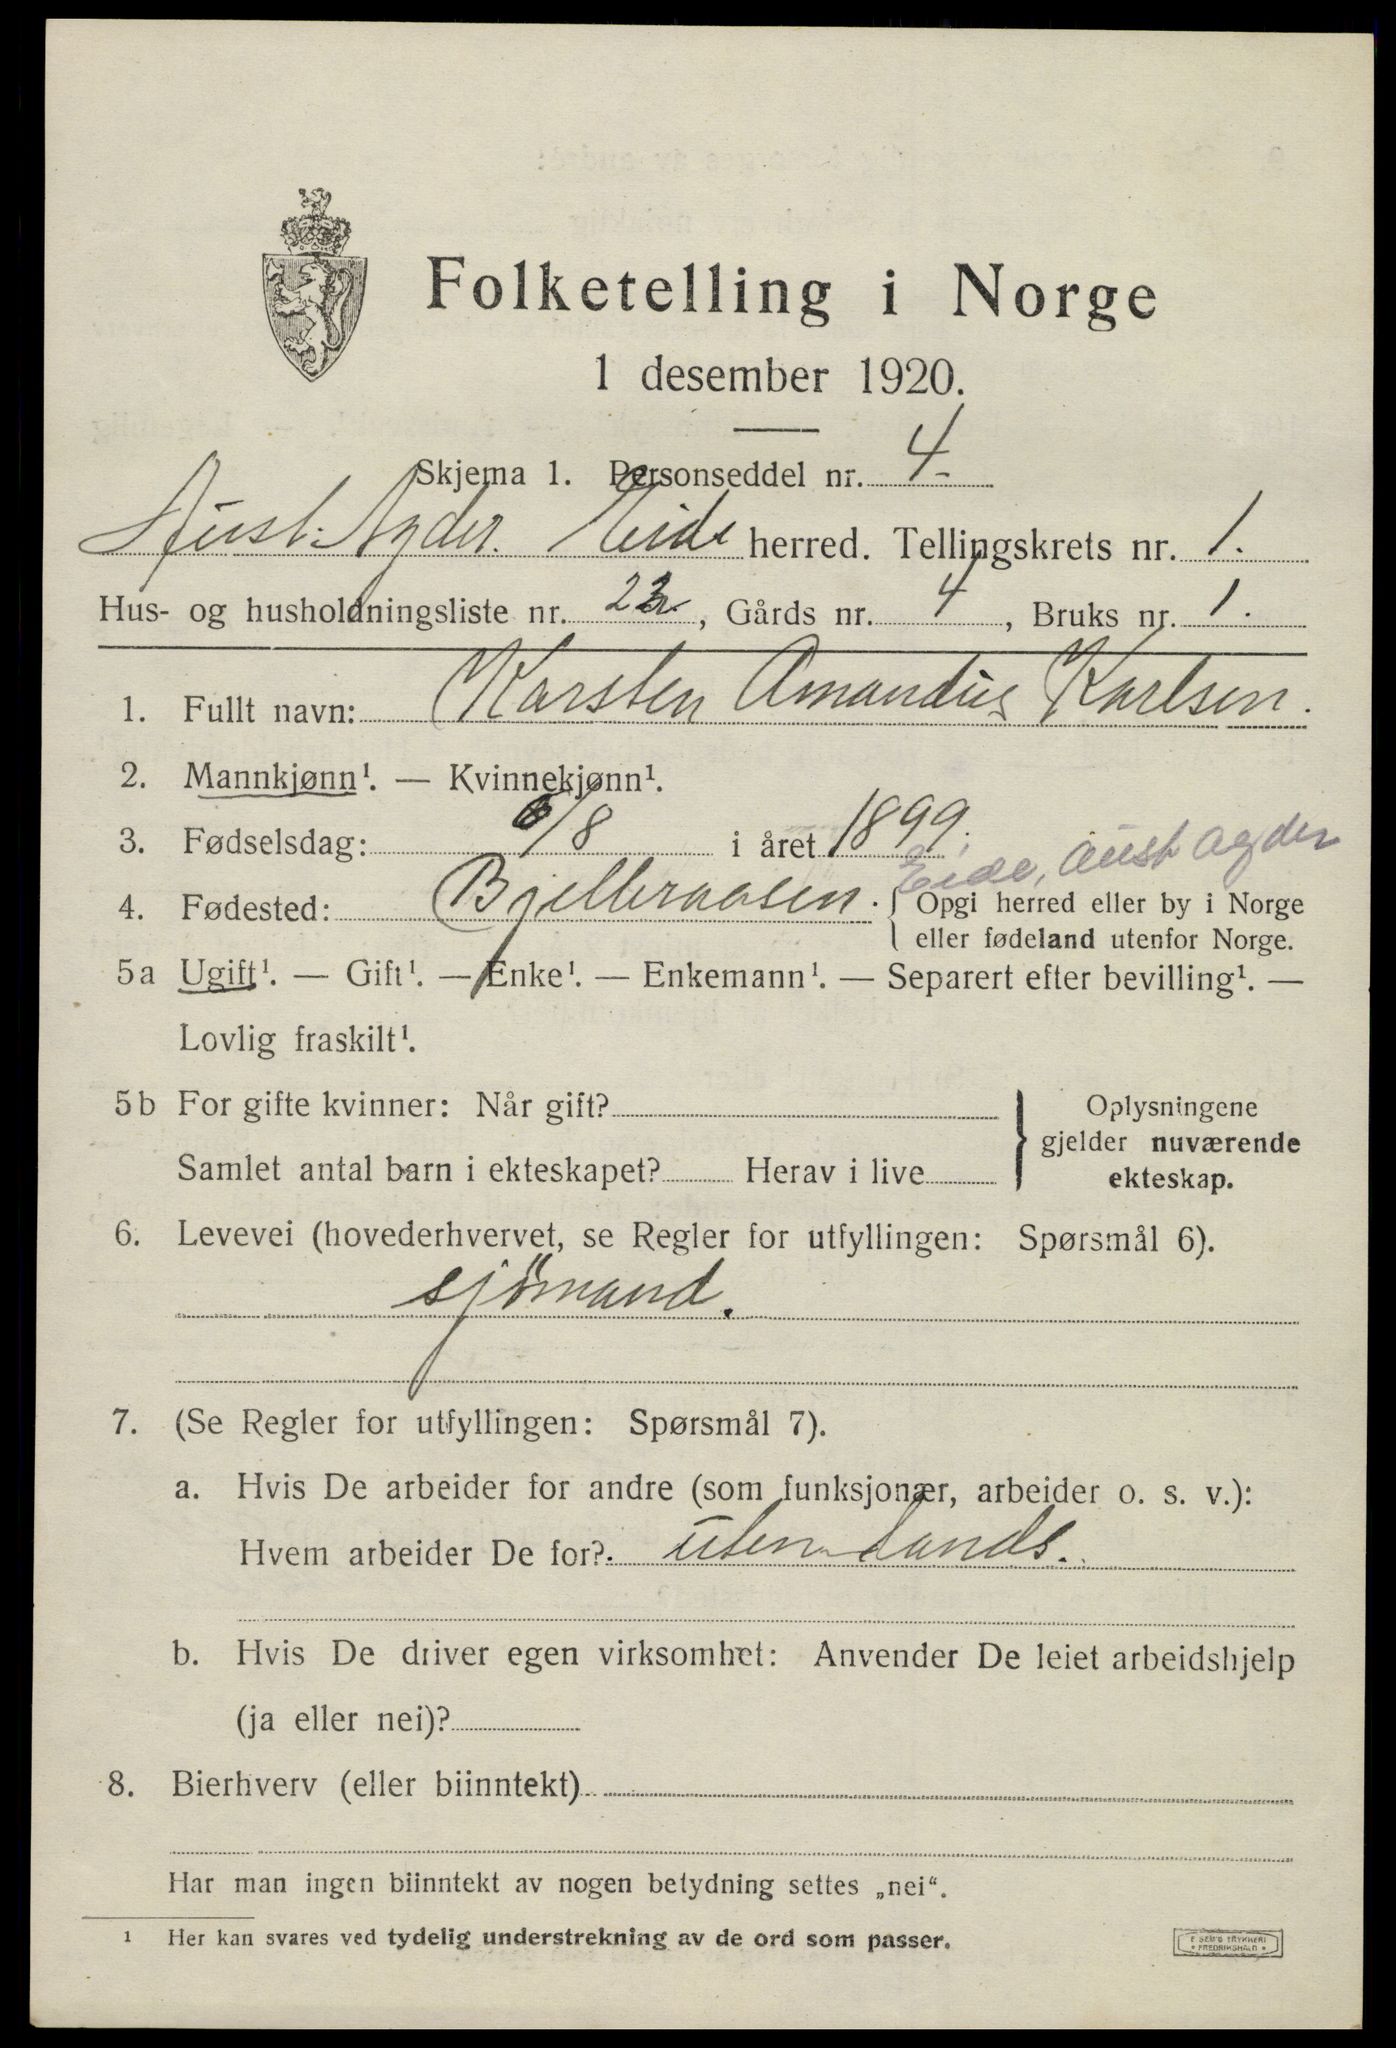 Folketelling i Norge
1 desember 1920.
Skjema 1. Personseddel nr. 4.
Aust-Agder. Eide herred. Tellingskrets nr. 1.
Hus- og husholdningsliste nr. , Gårds nr. 4, Bruks nr. 1.
1. Fullt navn: Karsten Amandus Karlsen.
2. Mannkjønn¹. — Kvinnekjønn¹.
3. Fødselsdag: 6/8 i året 1899.
Eide, Aust Agder
4. Fødested: Bjelleraasen. { Opgi herred eller by i Norge
eller fødeland utenfor Norge.
5a Ugift¹. — Gift¹. — Enke¹. — Enkemann¹. — Separert efter bevilling¹. —
Lovlig fraskilt¹.
5b For gifte kvinner: Når gift?
Samlet antal barn i ekteskapet? Herav i live
} Oplysningene
gjelder nuværende
ekteskap.
6. Levevei (hovederhvervet, se Regler for utfyllingen: Spørsmål 6).
sjömand.
7. (Se Regler for utfyllingen: Spørsmål 7).
a. Hvis De arbeider for andre (som funksjonær, arbeider o. s. v.):
Hvem arbeider De for? uten lands.
b. Hvis De driver egen virksomhet: Anvender De leiet arbeidshjelp
(ja eller nei)?
8. Bierhverv (eller biinntekt)
Har man ingen biinntekt av nogen betydning settes „nei“.
¹ Her kan svares ved tydelig understrekning av de ord som passer.
E SEM'S TRYKKERI
* FREDRIKSHALD *